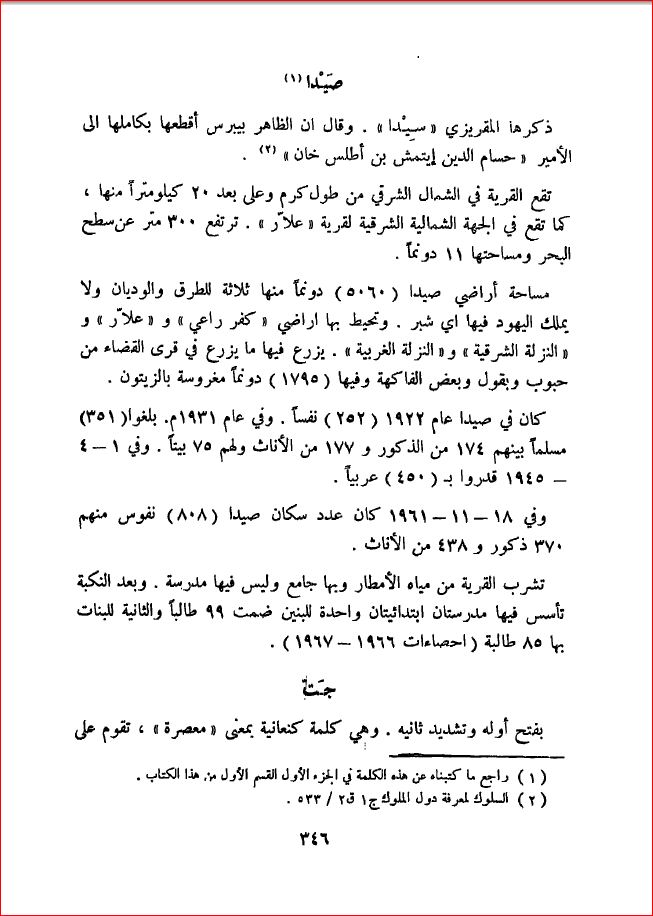 صَيْدا (١)
ذكرها المقريزي « سـِيْدا » . وقال ان الظاهر بيبرس أقطعها بكاملها الى
الأمير « حسام الدين إيتمش بن أطلس خان » (٢) .
تقع القرية في الشمال الشرقي من طول كرم وعلى بعد ٢٠ كيلومتراً منها ،
كما تقع في الجهة الشمالية الشرقية لقرية « علاّر » . ترتفع ٣٠٠ متر عن سطح
البحر ومساحتها ١١ دونماً .
مساحة أراضي صيدا ( ٥٠٦٠ ) دونماً منها ثلاثة للطرق والوديان ولا
يملك اليهود فيها اي شبر . وتحيط بها اراضي « كفر راعي » و « علاّر » و
« النزلة الشرقية » و « النزلة الغربية » . يزرع فيها ما يزرع في قرى القضاء من
حبوب وبقول وبعض الفاكهة وفيها ( ١٧٩٥ ) دونماً مغروسة بالزيتون .
كان في صيدا عام ١٩٢٢ ( ٢٥٢ ) نفساً . وفي عام ١٩٣١م. بلغوا (٣٥١)
مسلماً بينهم ١٧٤ من الذكور و ١٧٧ من الأناث ولهم ٧٥ بيتاً . وفي ١ – ٤
– ١٩٤٥ قدروا بـ ( ٤٥٠ ) عربياً .
وفي ١٨ – ١١ – ١٩٦١ كان عدد سكان صيدا ( ٨٠٨ ) نفوس منهم
٣٧٠ ذكور و ٤٣٨ من الأناث .
تشرب القرية من مياه الأمطار وبها جامع وليس فيها مدرسة . وبعد النكبة
تأسس فيها مدرستان ابتدائيتان واحدة للبنين ضمت ٩٩ طالباً والثانية للبنات
بها ٨٥ طالبة ( احصاءات ١٩٦٦ – ١٩٦٧ ) .
جَتّة
بفتح أوله وتشديد ثانيه . وهي كلمة كنعانية بمعنى « معصرة » ، تقوم على
( ١ ) راجع ما كتبناه عن هذه الكلمة في الجزء الأول القسم الأول من هذا الكتاب .
( ٢ ) السلوك لمعرفة دول الملوك ج١ ق٢ / ٥٣٣ .
٣٤٦